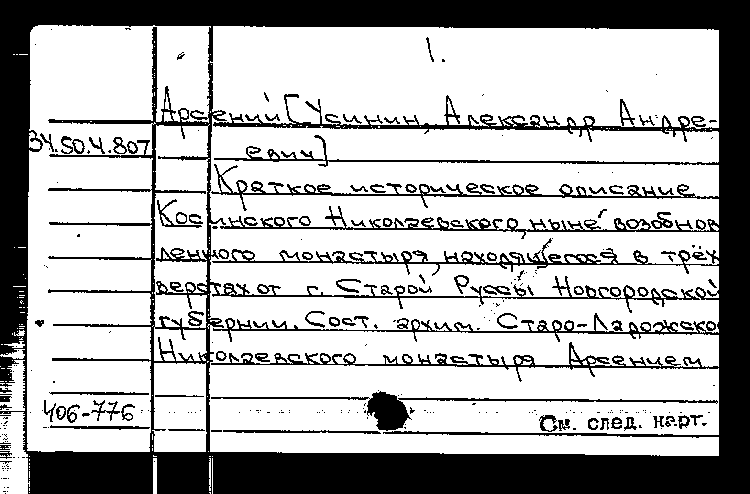 1.
Арсений [Усинин, Александр Андре-
34.50.4.807
евич]
Краткое историческое описание
Косинского Николаевского, ныне возобнов
ленного монастыря, находящегося в трёх
верстах от г. Старой Руссы Новгородской
губернии. Сост. архим. Старо-Ладожско
Николаевского монастыря Арсением
406-776
См. след. карт.